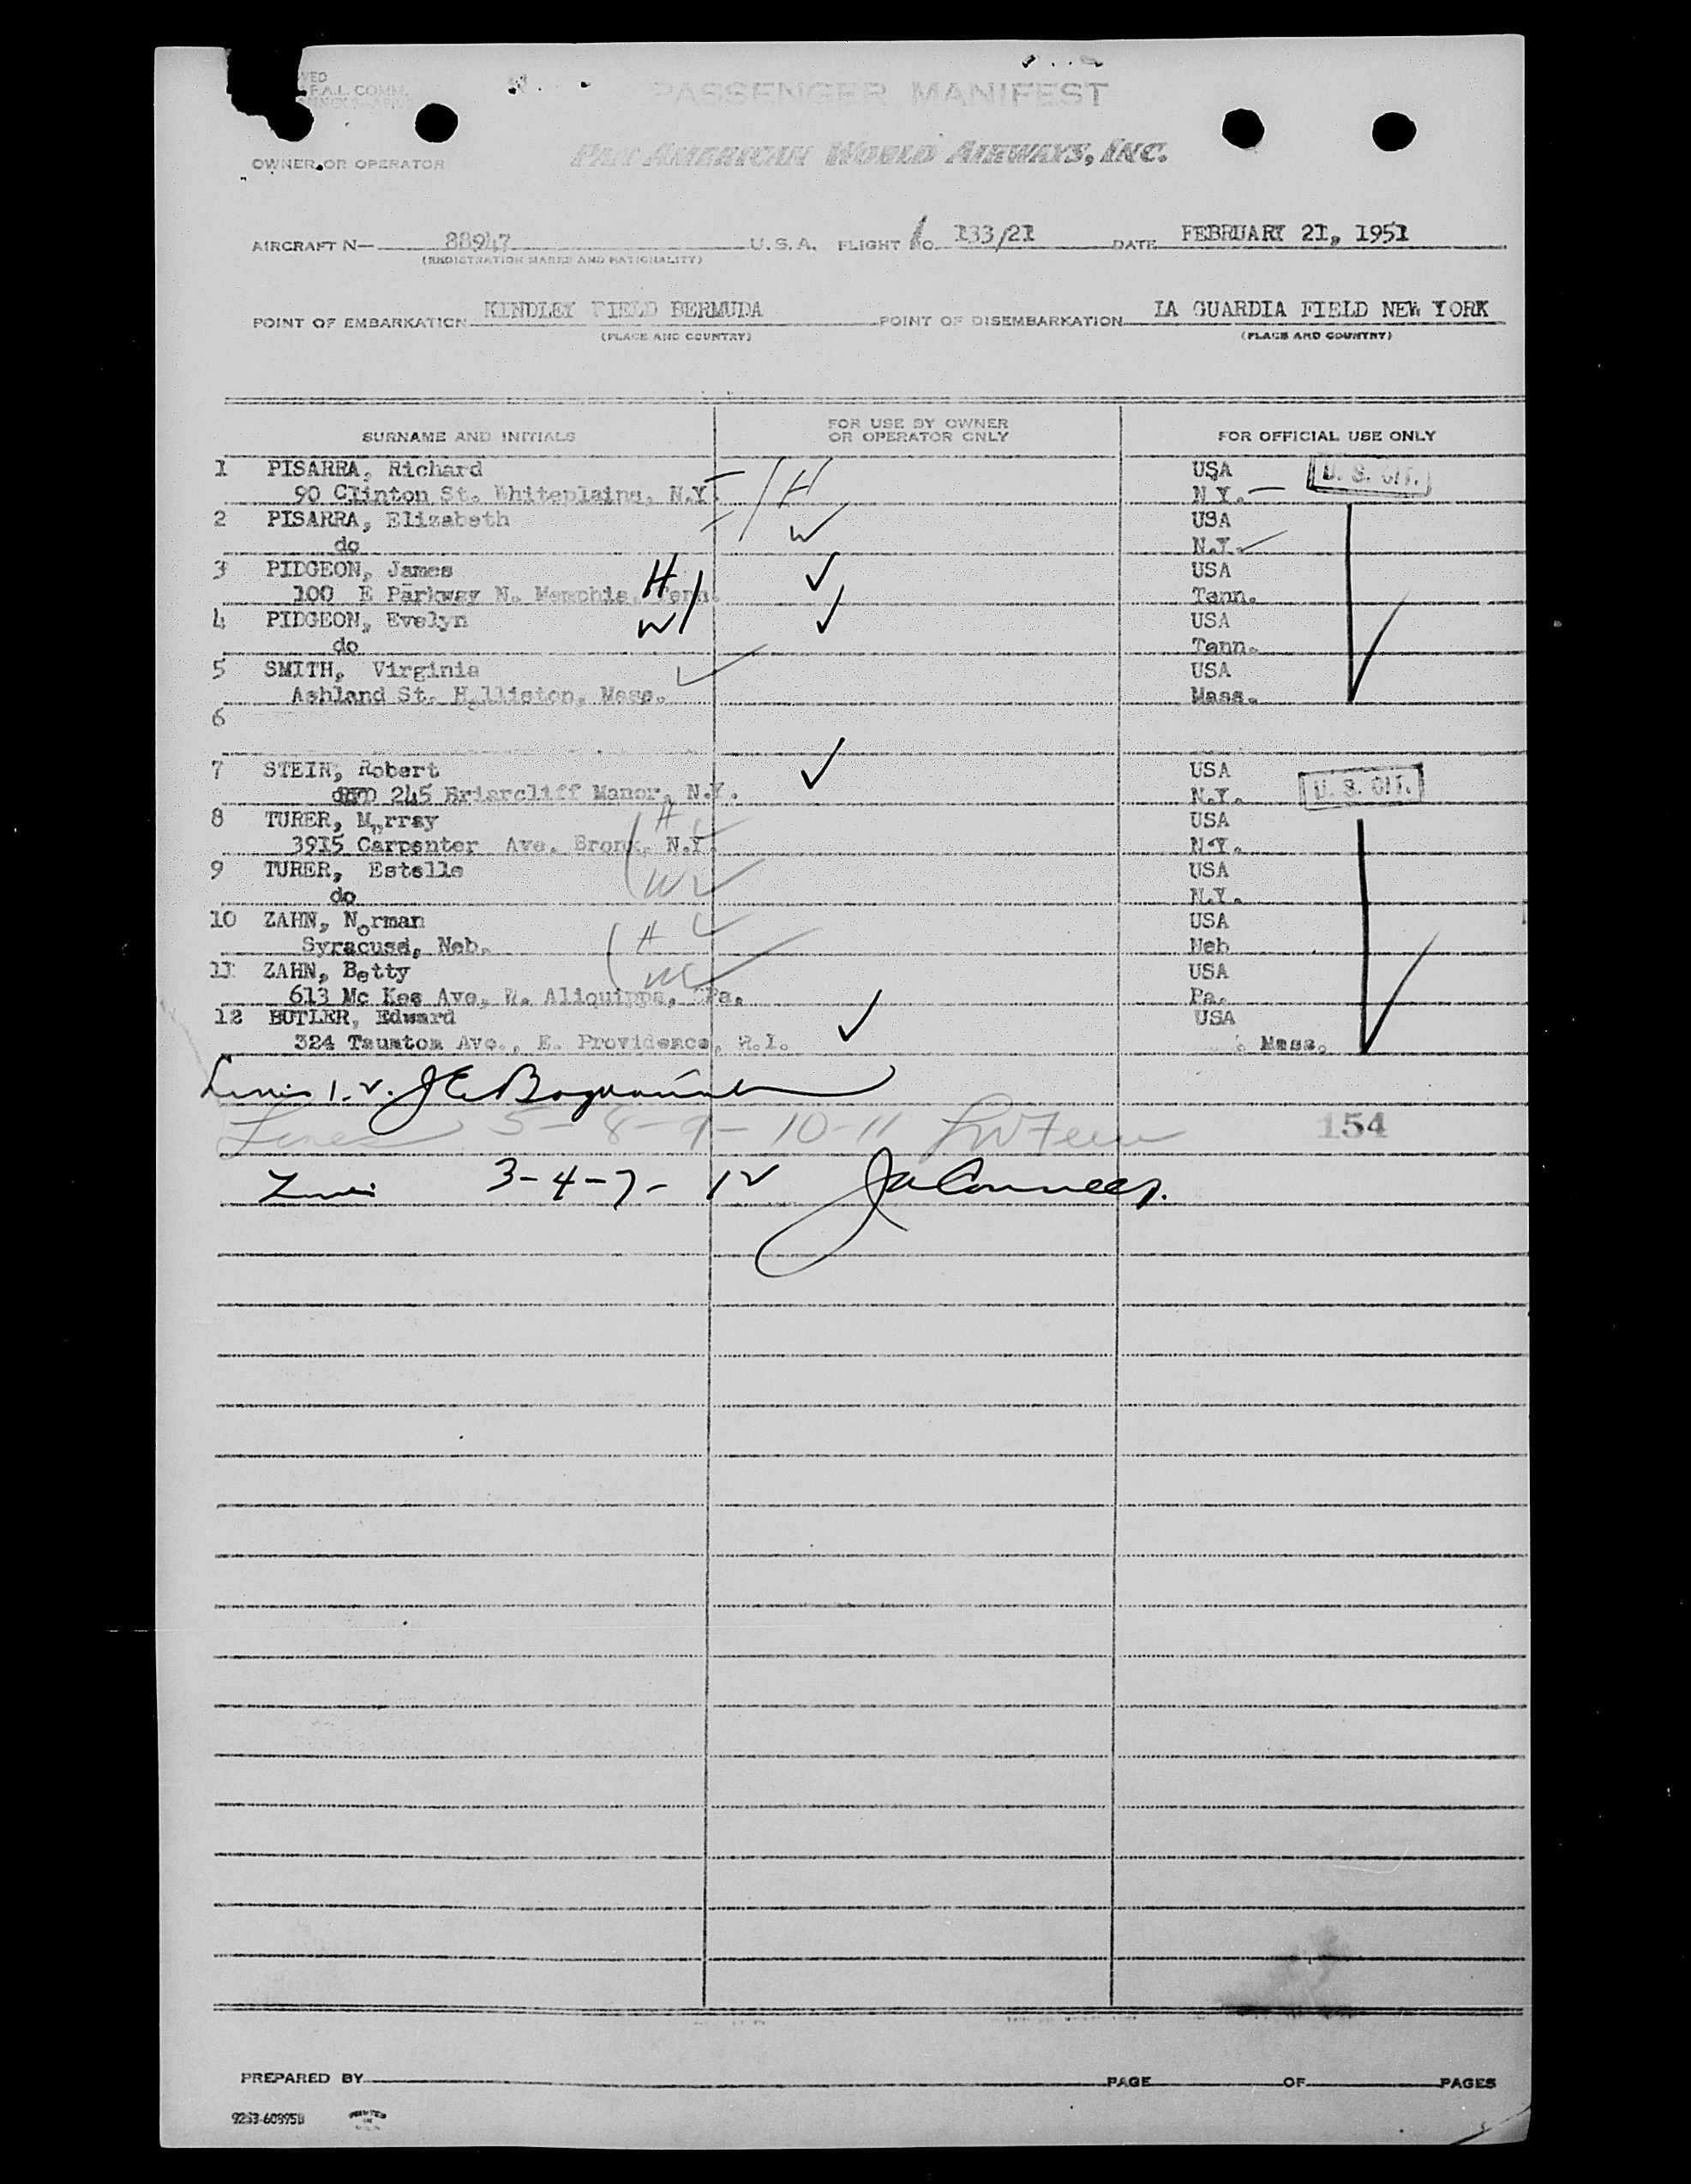 PASSENGER MANIFEST
F.A.L. COMM.
OWNER OR OPERATOR PAN AMERICAN WORLD AIRWAYS, INC.
AIRCRAFT N— 88947 U.S.A. FLIGHT NO. 133/21 DATE FEBRUARY 21, 1951
(REGISTRATION MARKS AND NATIONALITY)
POINT OF EMBARKATION KINDLEY FIELD BERMUDA POINT OF DISEMBARKATION LA GUARDIA FIELD NEW YORK
(PLACE AND COUNTRY) (PLACE AND COUNTRY)
SURNAME AND INITIALS FOR USE BY OWNER OR OPERATOR ONLY FOR OFFICIAL USE ONLY
1 PISARRA, Richard H USA U.S. CIT.
90 Clinton St. Whiteplains, N.Y. N.Y.
2 PISARRA, Elizabeth W USA
do N.Y.
3 PIDGEON, James H USA
100 E Parkway N. Memphis, Tenn. Tenn.
4 PIDGEON, Evelyn W USA
do Tenn.
5 SMITH, Virginia USA
Ashland St. Holliston, Mass. Mass.
6
7 STEIN, Robert USA U.S. CIT.
245 Briarcliff Manor, N.Y. N.Y.
8 TURER, Morray H USA
3915 Carpenter Ave. Bronx, N.Y. N.Y.
9 TURER, Estelle W USA
do N.Y.
10 ZAHN, Norman H USA
Syracuse, Neb. Neb
11 ZAHN, Betty W USA
613 Mc Kee Ave, W. Aliquippa, Pa. Pa.
12 BUTLER, Edward USA
324 Taunton Ave., E. Providence, R.I. Mass.
1-2.
Lines 5-8-9-10-11 154
3-4-7-12
PREPARED BY PAGE OF PAGES
9253-60895B PRINTED IN U.S.A.